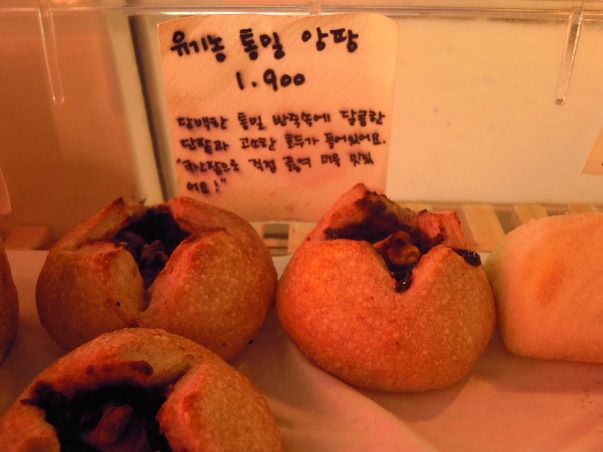 유기농 통밀 앙팡
1.900
담백한 통밀 반죽속에 달콤한
단팥과 고소한 호두가 들어있어요.
"국산팥으로 직접 끓여 더욱 맛있
어요!"